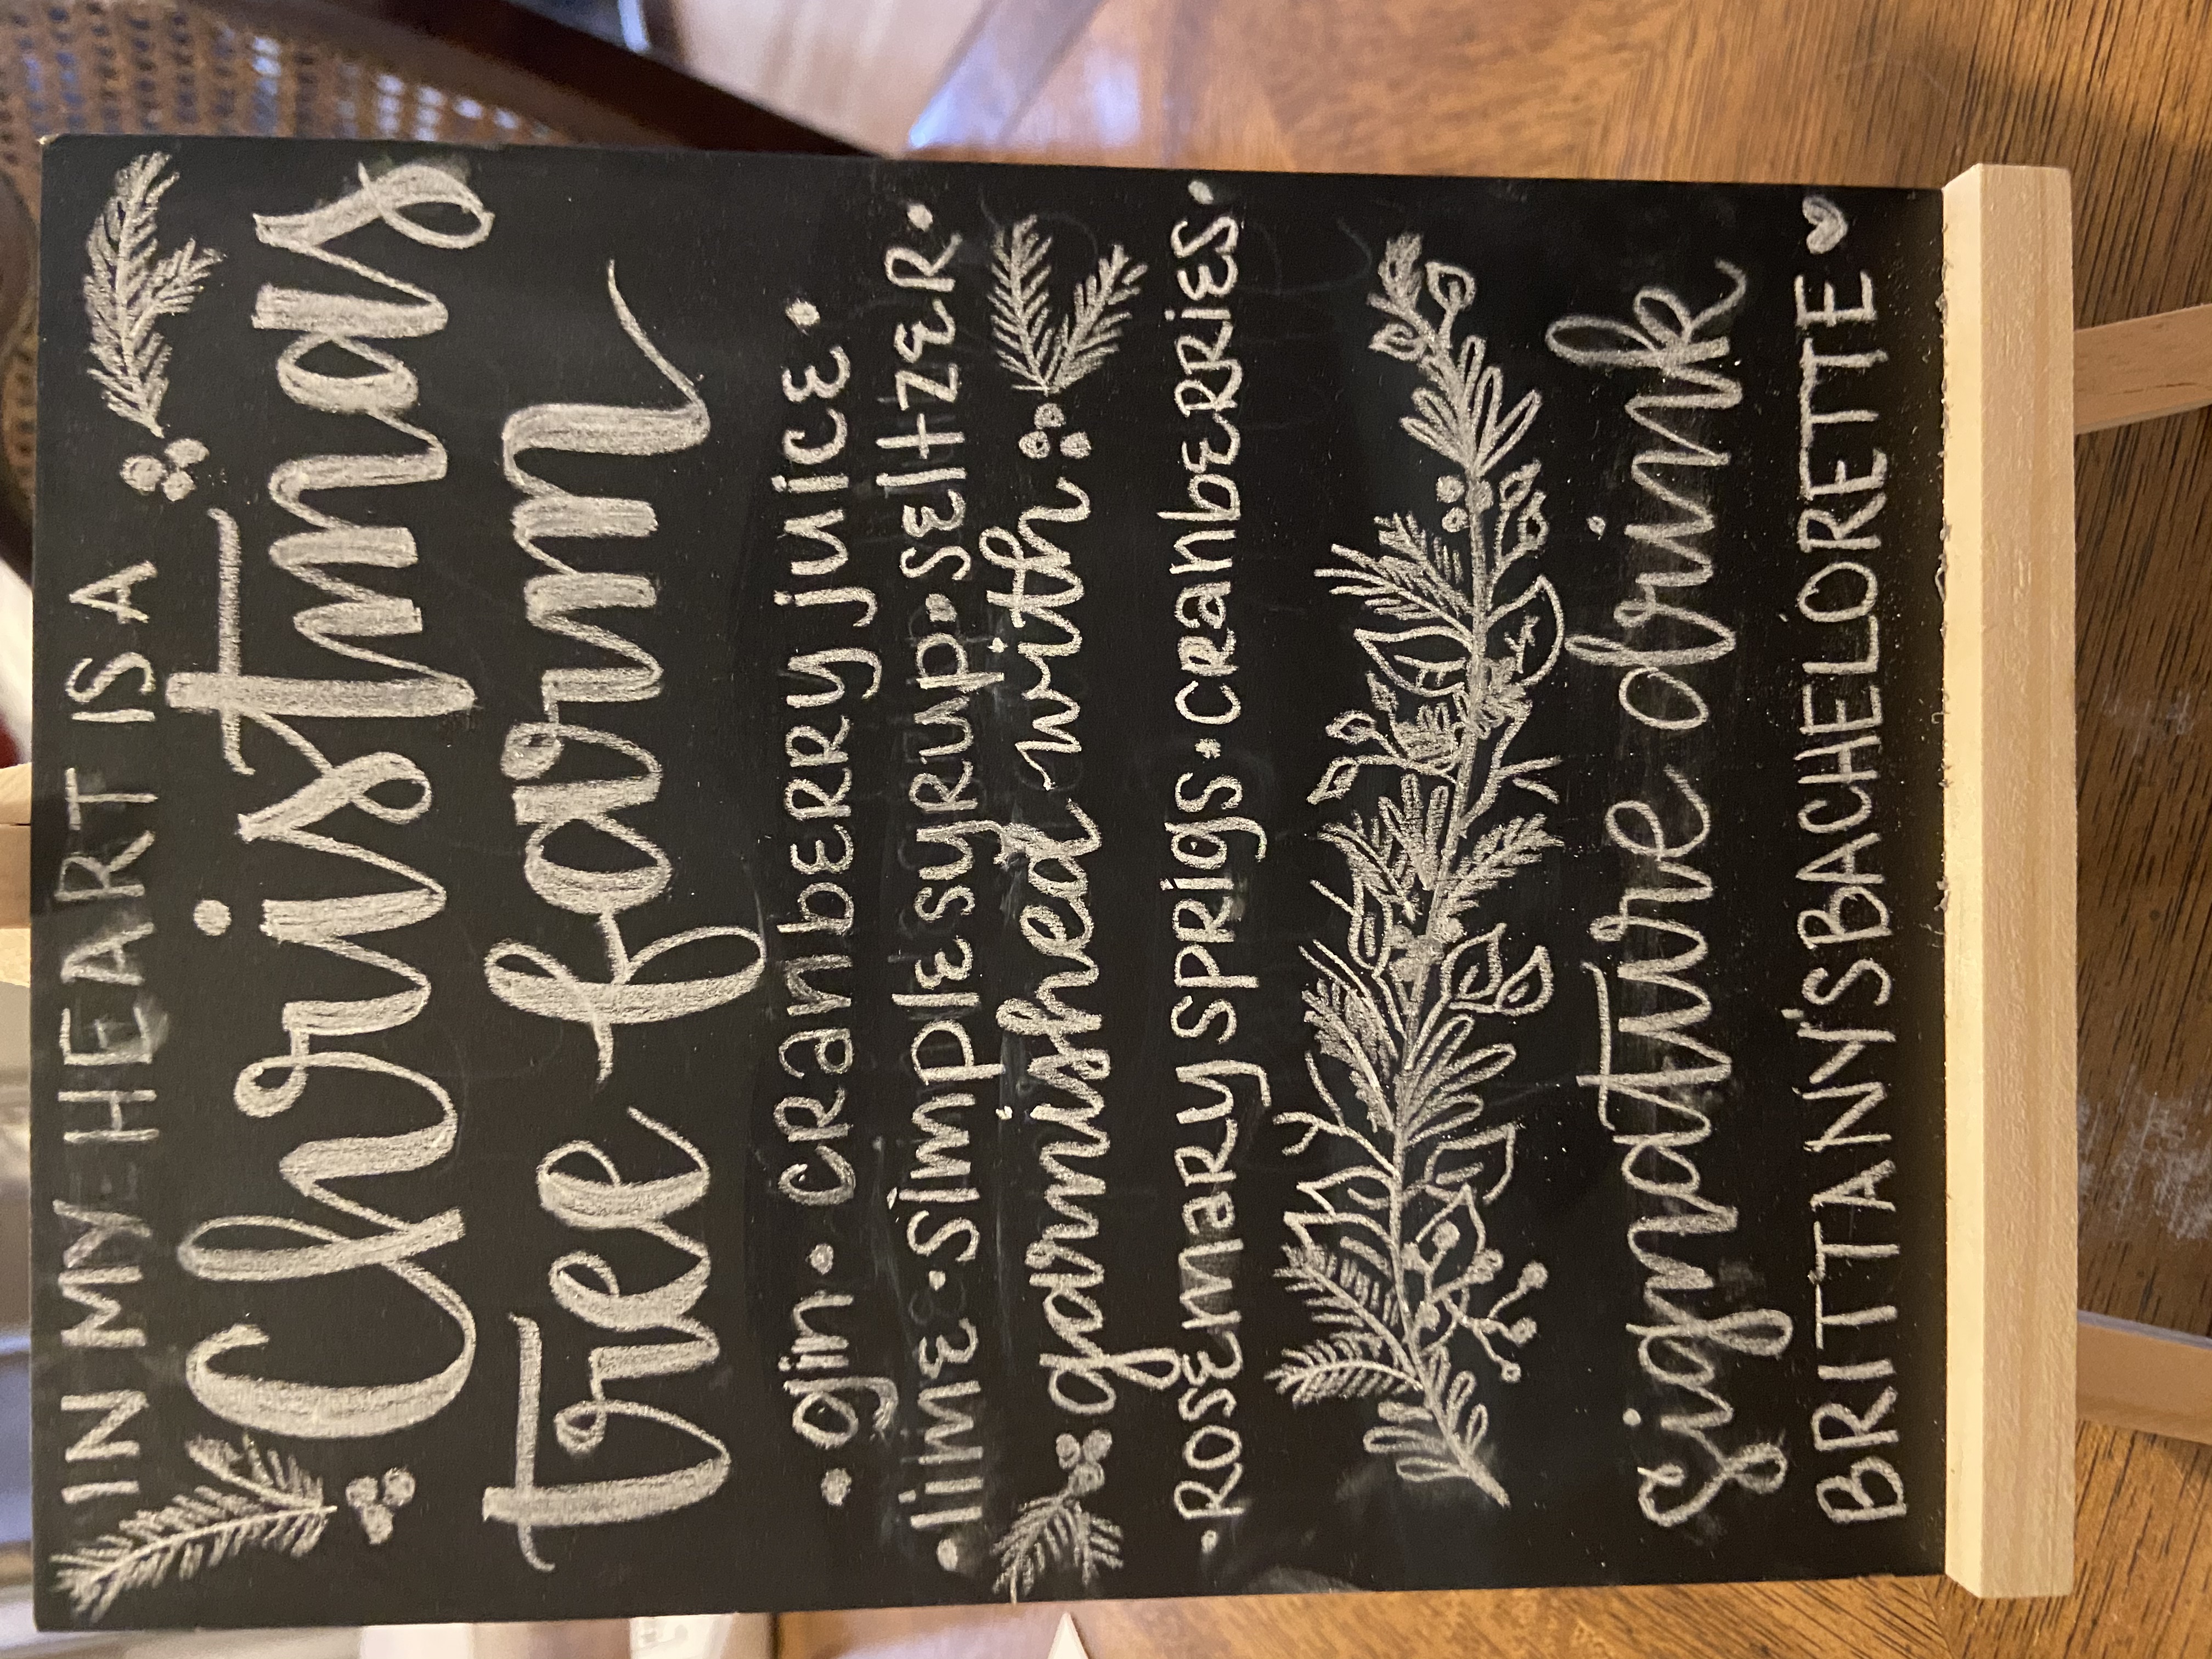 IN MY HEART IS A
Christmas
tree farm
• gin • cranberry juice •
• lime • simple syrup • seltzer •
garnished with
• Rosemary sprigs • cranberries •
signature drink
BRITTANY'S BACHELORETTE ♥